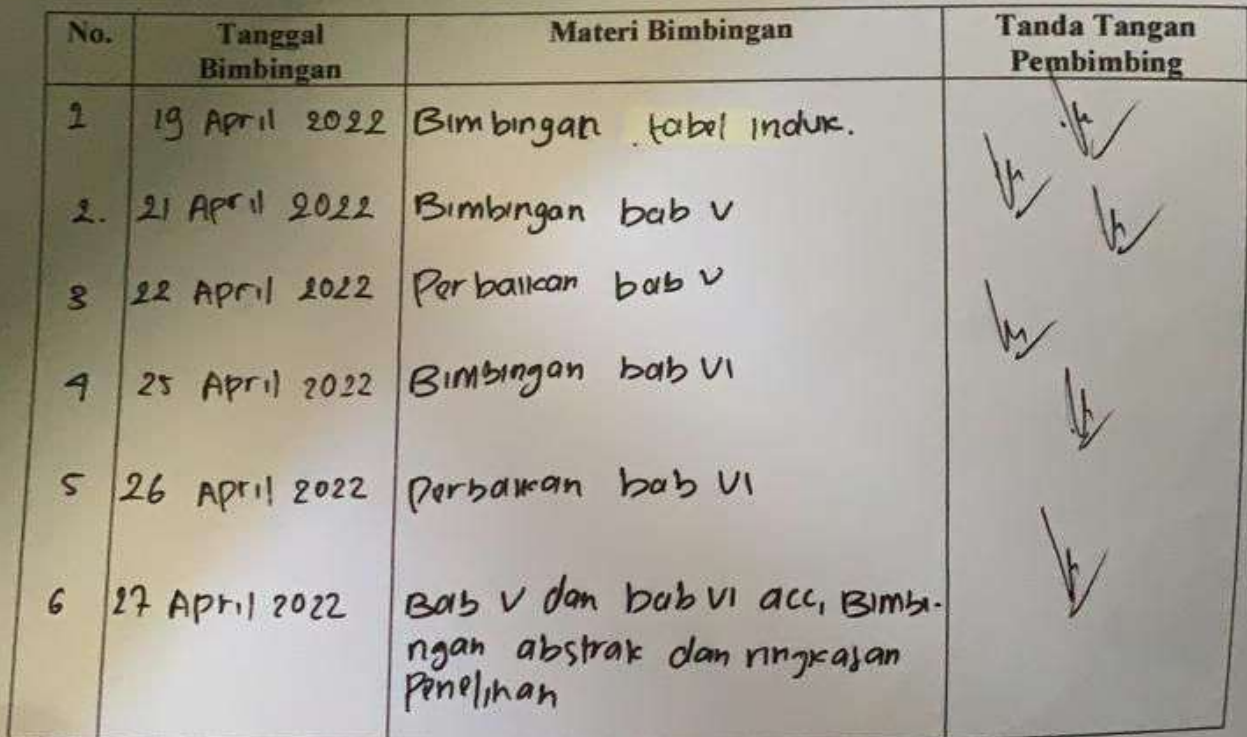 No. Tanggal Bimbingan Materi Bimbingan Tanda Tangan Pembimbing
1 19 April 2022 Bimbingan tabel induk.
2. 21 April 2022 Bimbingan bab V
3 22 April 2022 Perbaikan bab V
4 25 April 2022 Bimbingan bab VI
5 26 April 2022 Perbaikan bab VI
6 27 April 2022 Bab V dan bab VI acc, Bimbi-
ngan abstrak dan ringkasan
Penelitian